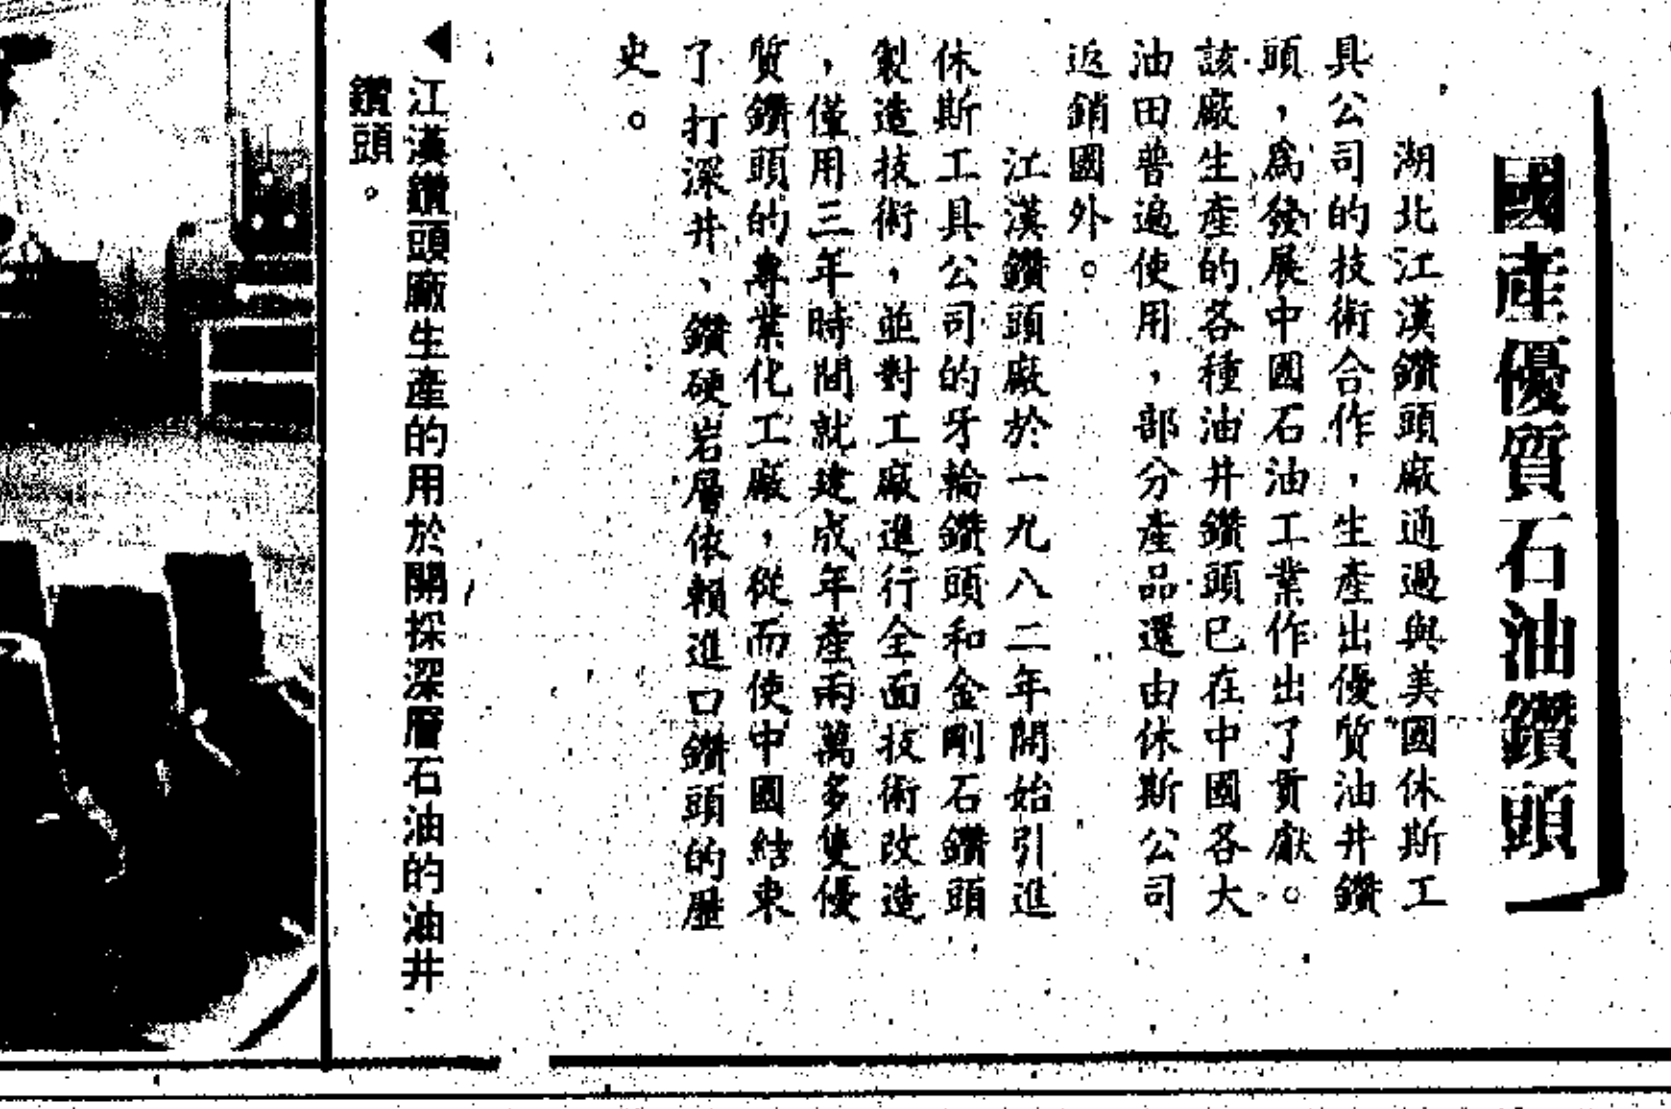 國產優質石油鑽頭
湖北江漢鑽頭廠通過與美國休斯工
具公司的技術合作，生產出優質油井鑽
頭，爲發展中國石油工業作出了貢獻。
該廠生產的各種油井鑽頭已在中國各大
油田普遍使用，部分產品還由休斯公司
返銷國外。
江漢鑽頭廠於一九八二年開始引進
休斯工具公司的牙輪鑽頭和金剛石鑽頭
製造技術，並對工廠進行全面技術改造
，僅用三年時間就建成年產兩萬多隻優
質鑽頭的專業化工廠，從而使中國結束
了打深井、鑽硬岩層依賴進口鑽頭的歷
史。
◀江漢鑽頭廠生產的用於開採深層石油的油井
鑽頭。